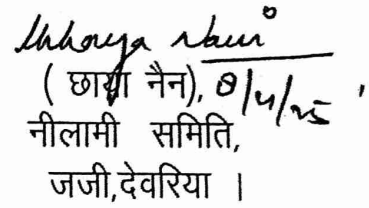 Chhaya Nain
(छाया नैन), 8/4/25
नीलामी समिति,
जजी,देवरिया ।